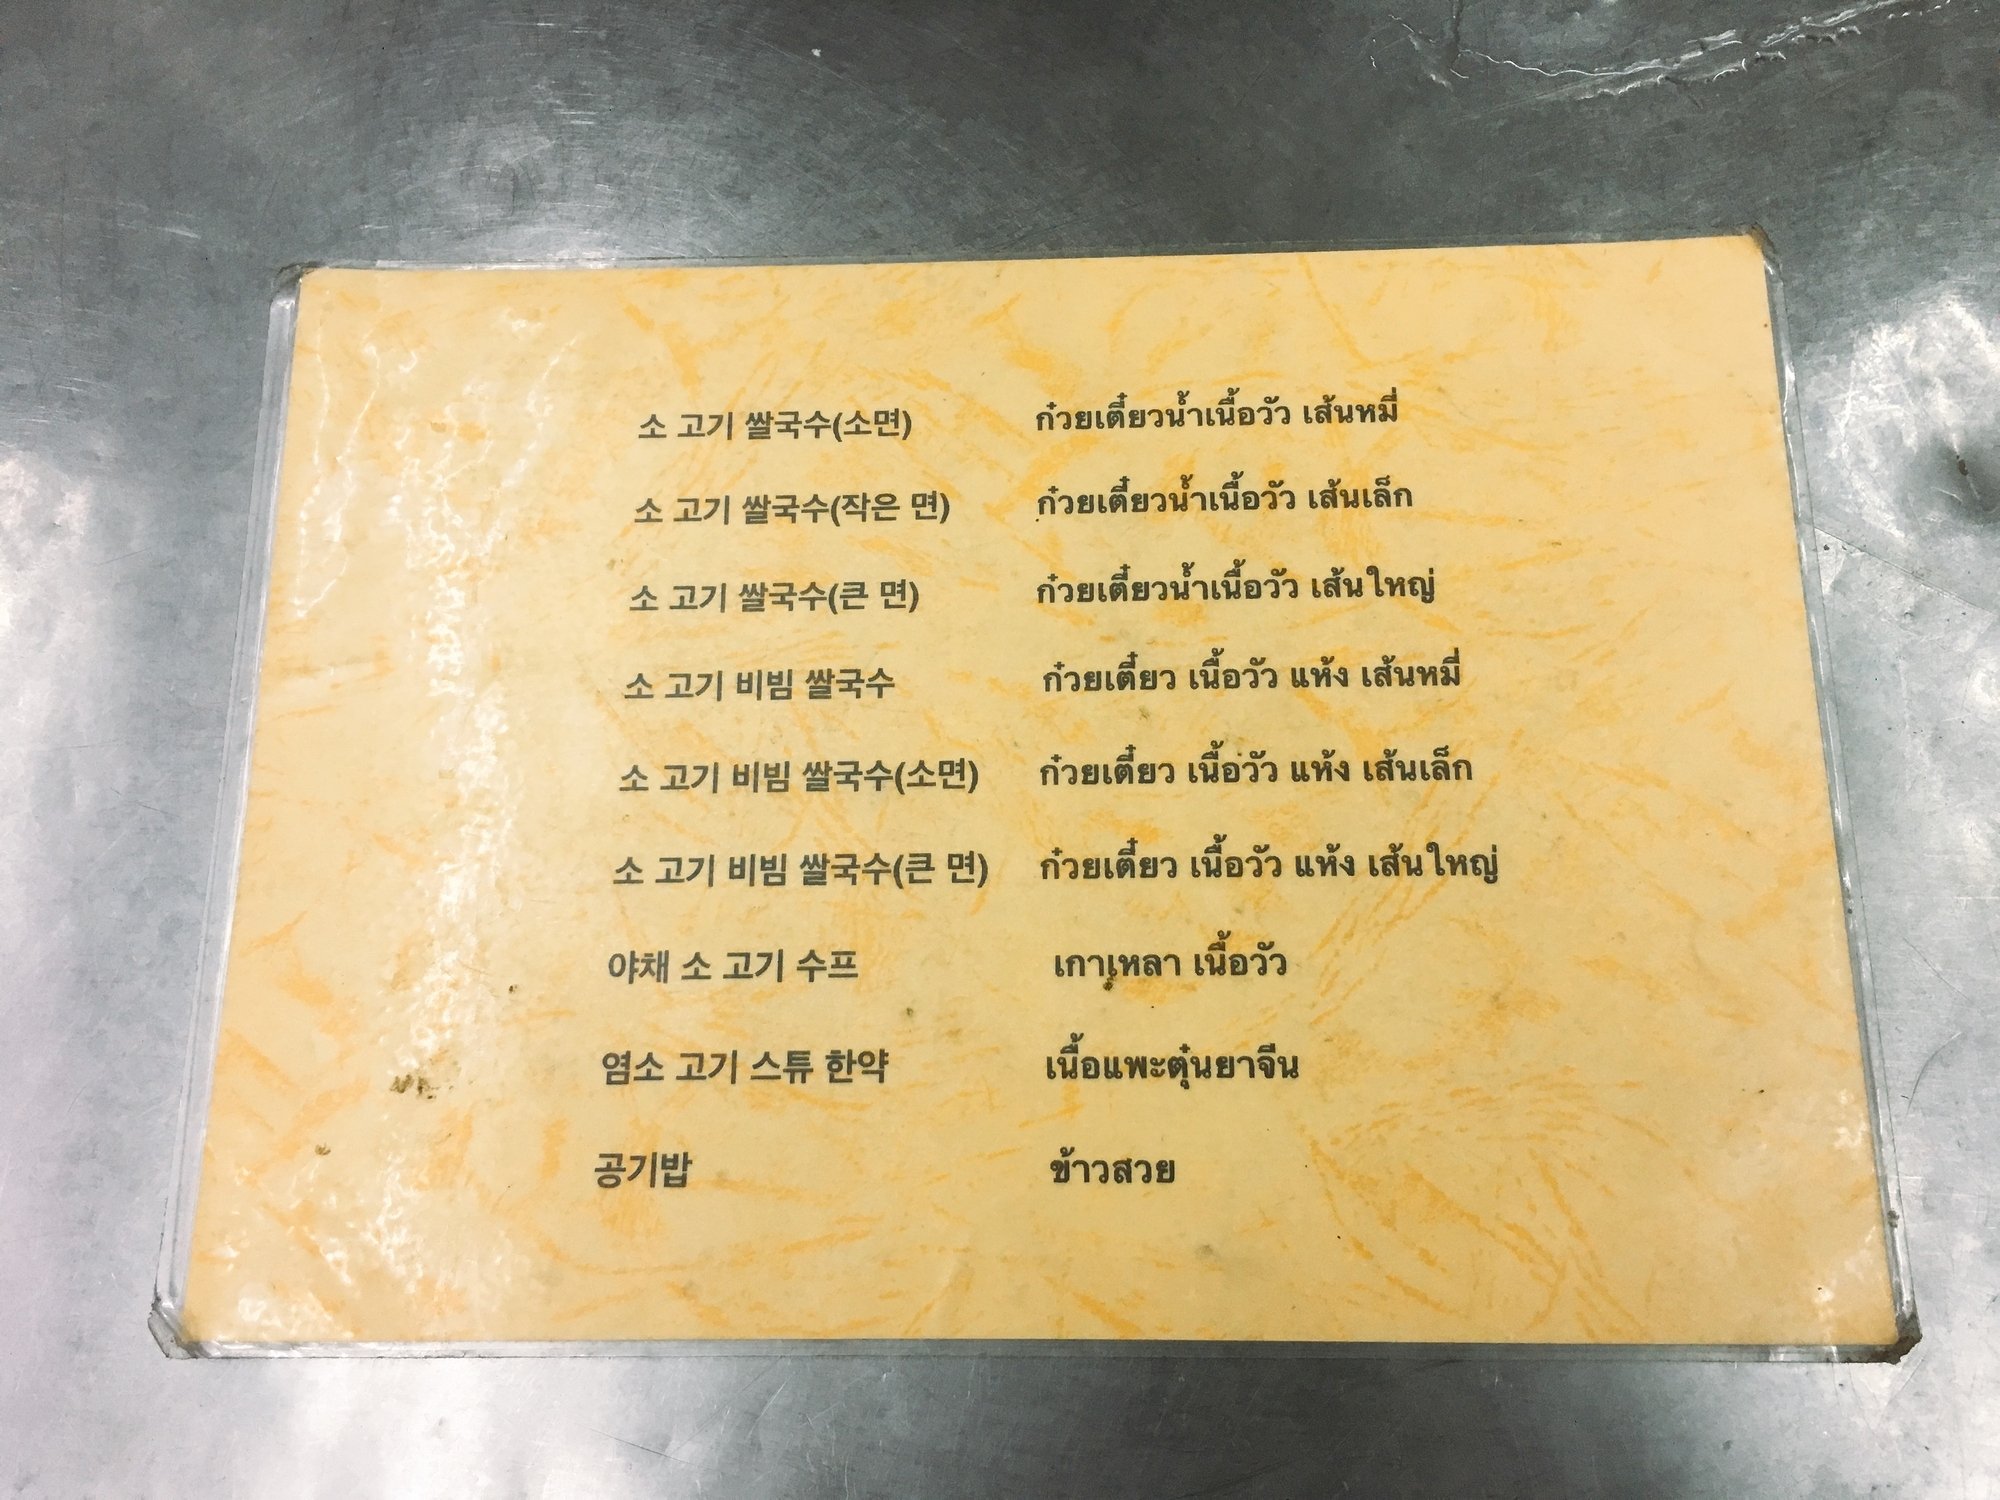 소 고기 쌀국수(소면) ก๋วยเตี๋ยวน้ำเนื้อวัว เส้นหมี่
소 고기 쌀국수(작은 면) ก๋วยเตี๋ยวน้ำเนื้อวัว เส้นเล็ก
소 고기 쌀국수(큰 면) ก๋วยเตี๋ยวน้ำเนื้อวัว เส้นใหญ่
소 고기 비빔 쌀국수 ก๋วยเตี๋ยว เนื้อวัว แห้ง เส้นหมี่
소 고기 비빔 쌀국수(소면) ก๋วยเตี๋ยว เนื้อวัว แห้ง เส้นเล็ก
소 고기 비빔 쌀국수(큰 면) ก๋วยเตี๋ยว เนื้อวัว แห้ง เส้นใหญ่
야채 소 고기 수프 เกาเหลา เนื้อวัว
염소 고기 스튜 한약 เนื้อแพะตุ๋นยาจีน
공기밥 ข้าวสวย